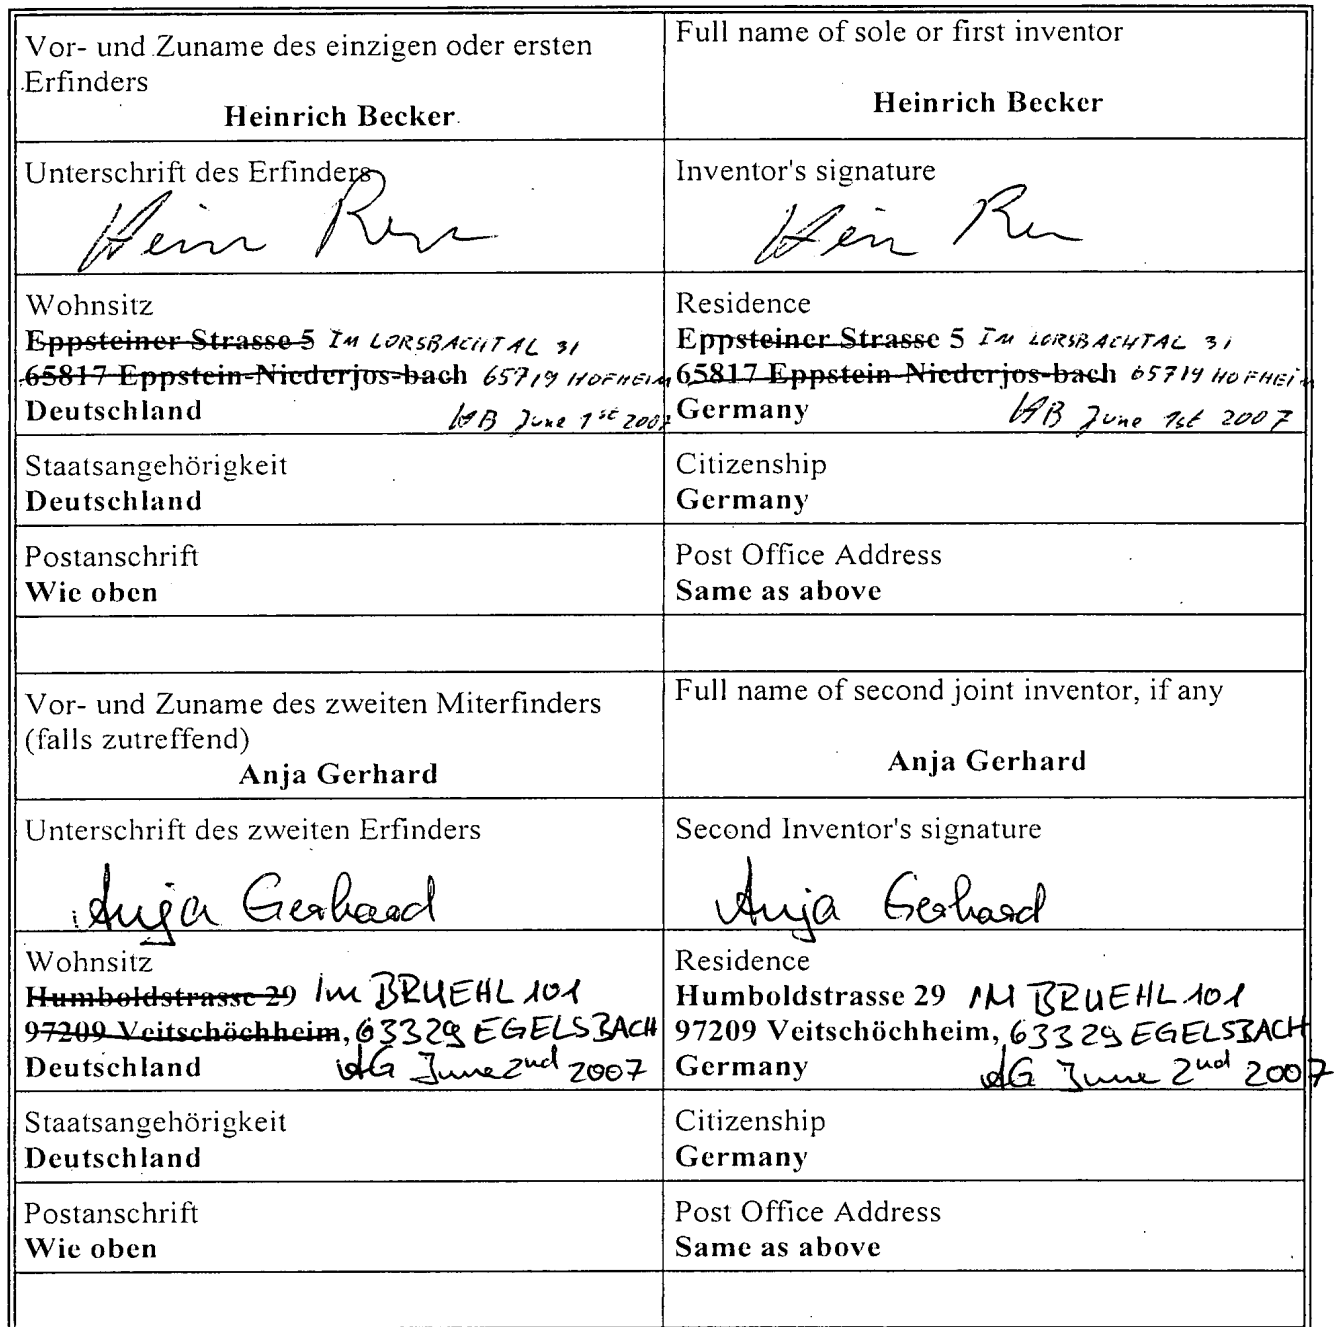 Vor- und Zuname des einzigen oder ersten
Erfinders
Heinrich Becker
Full name of sole or first inventor
Heinrich Becker
Unterschrift des Erfinders
Inventor's signature
Wohnsitz
Eppsteiner Strasse 5 IM LORSBACHTAL 31
65817 Eppstein-Niederjos-bach 65719 HOFHEIM
Deutschland HB June 1st 2007
Residence
Eppsteiner Strasse 5 IM LORSBACHTAL 31
65817 Eppstein-Niederjos-bach 65719 HOFHEIM
Germany HB June 1st 2007
Staatsangehörigkeit
Deutschland
Citizenship
Germany
Postanschrift
Wie oben
Post Office Address
Same as above
Vor- und Zuname des zweiten Miterfinders
(falls zutreffend)
Anja Gerhard
Full name of second joint inventor, if any
Anja Gerhard
Unterschrift des zweiten Erfinders
Anja Gerhard
Second Inventor's signature
Anja Gerhard
Wohnsitz
Humboldstrasse 29 IM BRUEHL 101
97209 Veitschöchheim, 63329 EGELSBACH
Deutschland AG June 2nd 2007
Residence
Humboldstrasse 29 IM BRUEHL 101
97209 Veitschöchheim, 63329 EGELSBACH
Germany AG June 2nd 2007
Staatsangehörigkeit
Deutschland
Citizenship
Germany
Postanschrift
Wie oben
Post Office Address
Same as above